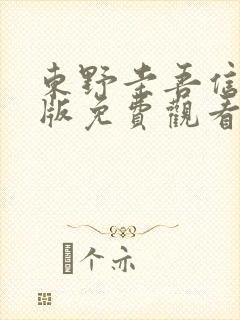 東野圭吾信
版免費觀看
个示